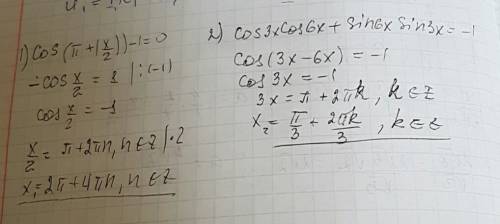 1) cos(π + (x/2)) - 1 = 0
- cos x/2 = 1 | : (-1)
cos x/2 = -1
x/2 = π + 2πn, n ∈ Z | · 2
x₁ = 2π + 4πn, n ∈ Z
2) cos3x cos6x + sin6x sin3x = -1
cos(3x - 6x) = -1
cos 3x = -1
3x = π + 2πk, k ∈ Z
x₂ = π/3 + 2πk/3, k ∈ Z